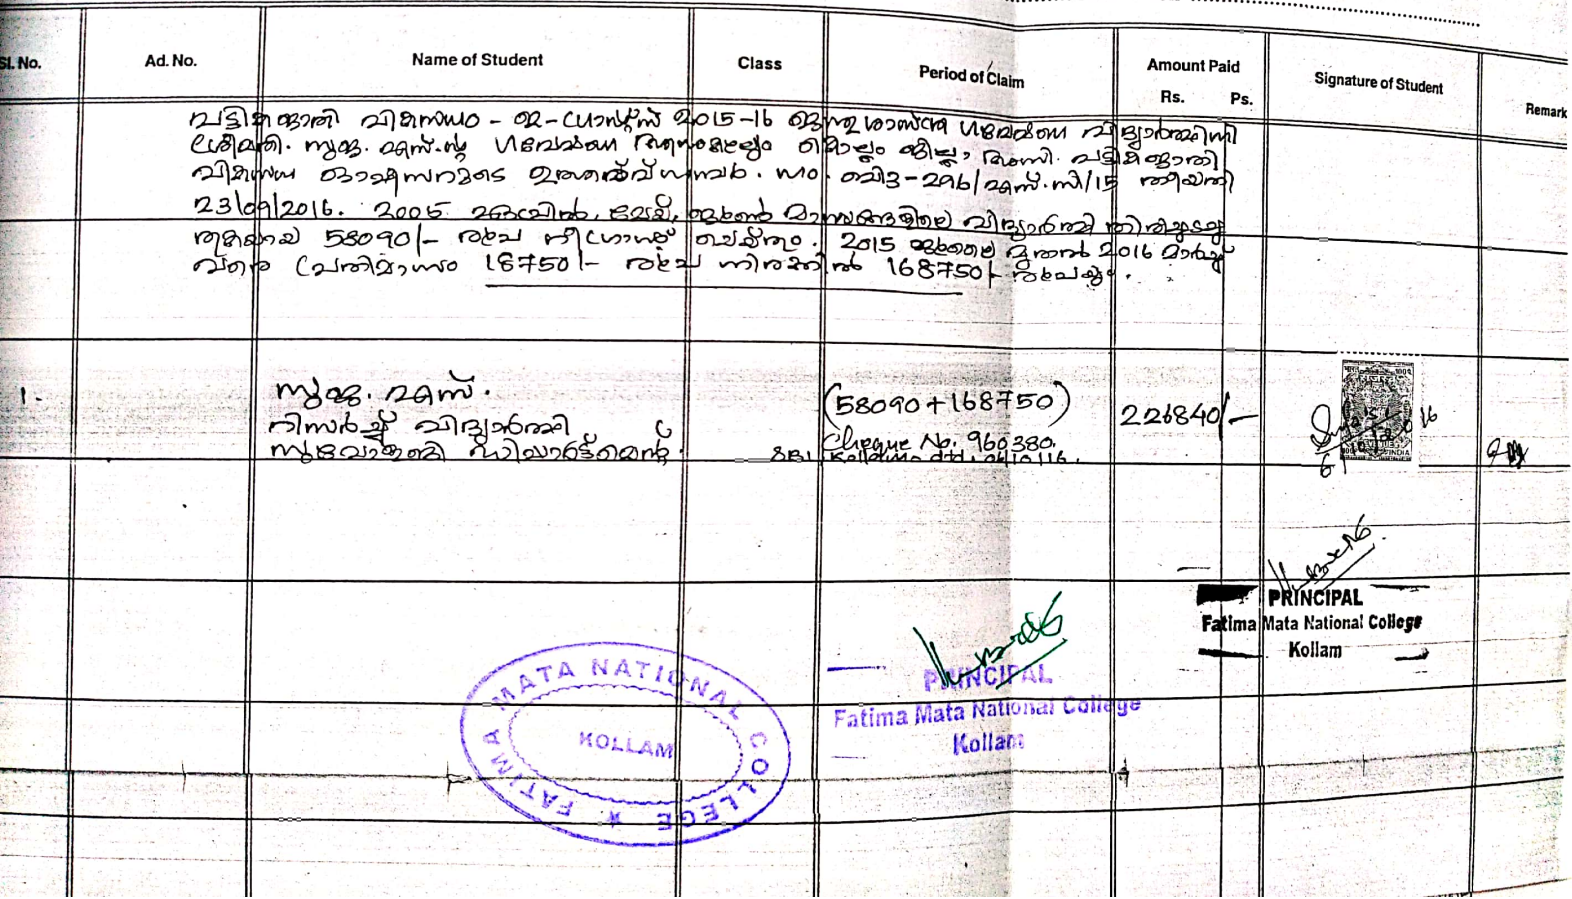 Sl. No.
Ad. No.
Name of Student
Class
Period of Claim
Amount Paid
Rs. Ps.
Signature of Student
Remark
പട്ടികജാതി വികസനം - ഇ-ഗ്രാന്റ്സ് 2015-16 ജന്തുശാസ്ത്ര ഗവേഷണ വിദ്യാർത്ഥിനി
ശ്രീമതി. സുജ. എസ്.ന്റെ ഗവേഷണ ആനുകൂല്യം കൊല്ലം ജില്ലാ, അസി. പട്ടികജാതി
വികസന ഓഫീസറുടെ ഉത്തരവ് നമ്പർ. നം. ബി3-296/എസ്.സി/15 തീയതി
23/09/2016. 2005 മെയ്, ജൂൺ മാസങ്ങളിലെ വിദ്യാർത്ഥി
തുകയായ 58090/- രൂപ ചെയ്തും. 2015 ജൂലൈ മുതൽ 2016 മാർച്ച്
വരെ പ്രതിമാസം 18750/- രൂപ നിരക്കിൽ 168750/- രൂപയും.
1.
സുജ. എസ്.
റിസർച്ച് വിദ്യാർത്ഥി
സുവോളജി ഡിപ്പാർട്ട്മെന്റ്.
(58090+168750)
Cheque No. 960380.
SBI Kollam dtd.
226840/-
PRINCIPAL
Fatima Mata National College
Kollam
PRINCIPAL
Fatima Mata National College
Kollam
FATIMA MATA NATIONAL COLLEGE
KOLLAM